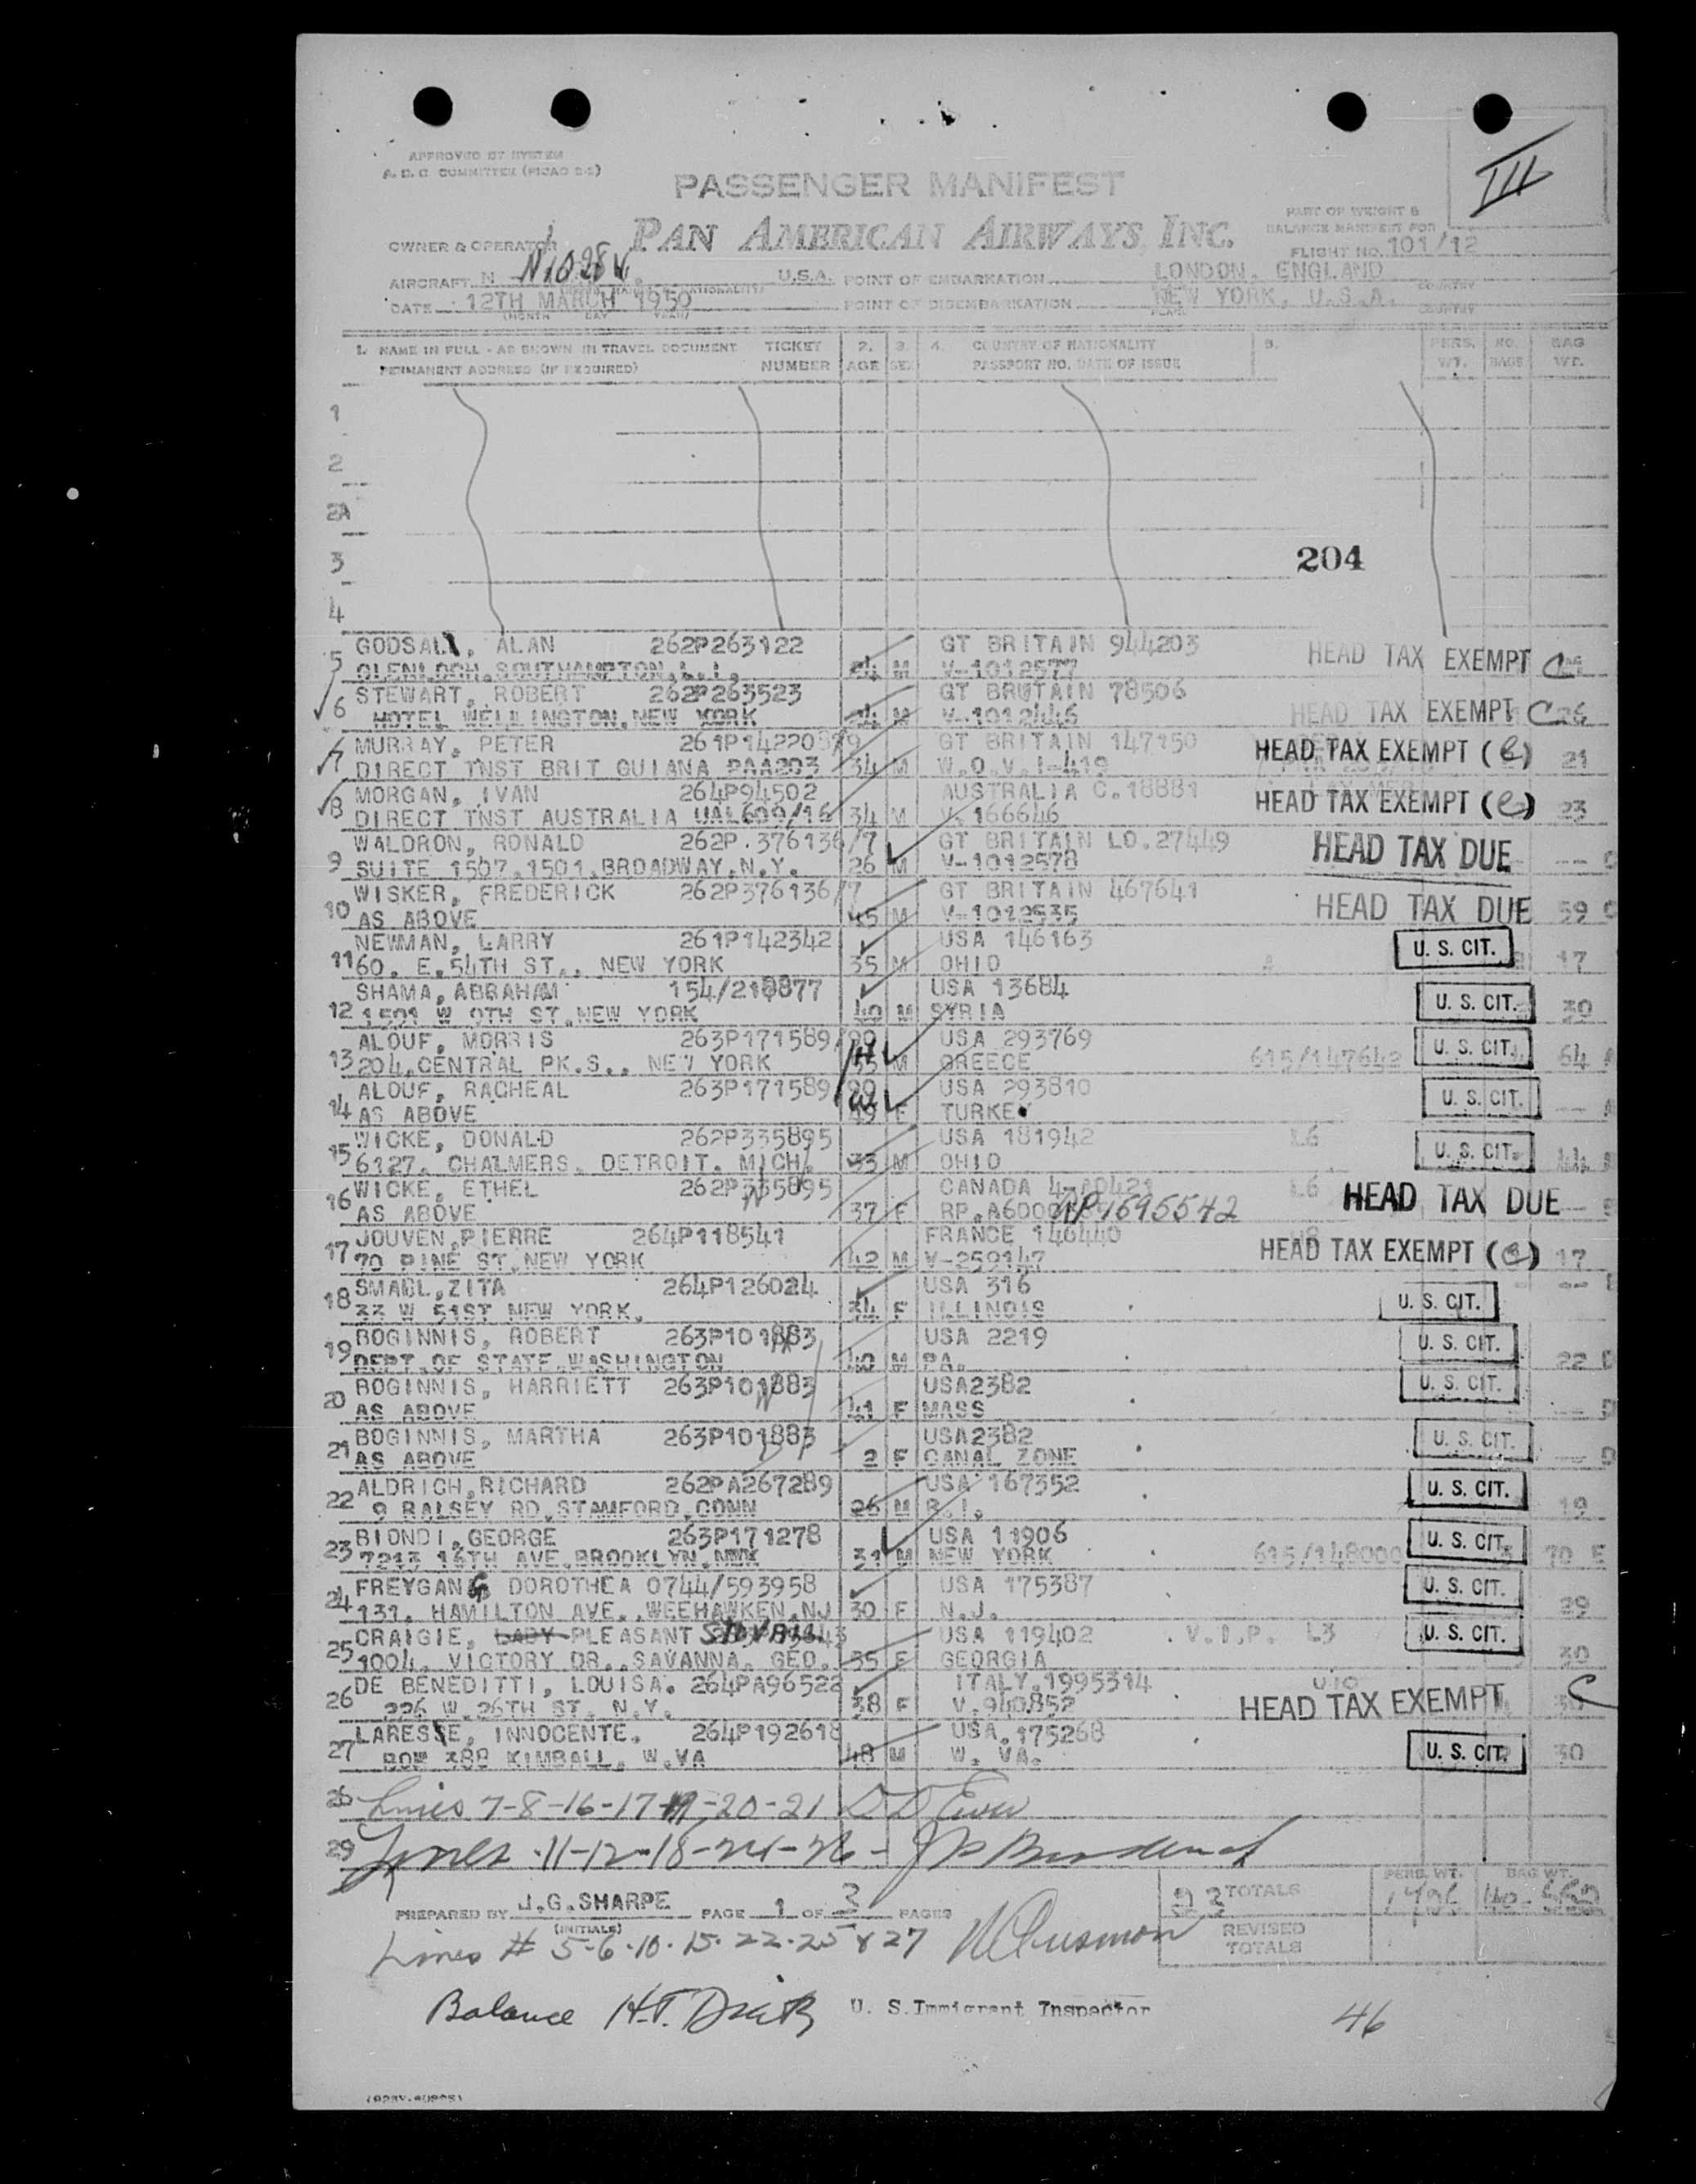 APPROVED BY SYSTEM
A. D. C. COMMITTEE (PICAO 2-2)
PASSENGER MANIFEST
III
PART OF WEIGHT &
BALANCE MANIFEST FOR
OWNER & OPERATOR PAN AMERICAN AIRWAYS, INC.
FLIGHT NO. 101/12
AIRCRAFT N U.S.A. POINT OF EMBARKATION LONDON, ENGLAND
COUNTRY
DATE 12TH MARCH 1950 POINT OF DISEMBARKATION NEW YORK, U.S.A.
(MONTH DAY YEAR) PLACE COUNTRY
1. NAME IN FULL - AS SHOWN IN TRAVEL DOCUMENT TICKET 2. 3. 4. COUNTRY OF NATIONALITY 5. PERS. NO. BAG
PERMANENT ADDRESS (IF REQUIRED) NUMBER AGE SEX PASSPORT NO. DATE OF ISSUE WT. BAGS WT.
1
2
2A
3 204
4
GODSALL, ALAN 262P263122 GT BRITAIN 944203 HEAD TAX EXEMPT C
5 GLENLOCH, SOUTHAMPTON, L.I. 24 M V-1012577
STEWART, ROBERT 262P263523 GT BRITAIN 78506
6 HOTEL WELLINGTON, NEW YORK 24 M V-1012446 HEAD TAX EXEMPT C 26
MURRAY, PETER 261P1422089 GT BRITAIN 147150 HEAD TAX EXEMPT (e)
7 DIRECT TNST BRIT GUIANA PAA203 34 M W.O.V.I-419 21
MORGAN, IVAN 264P94502 AUSTRALIA C.18881 HEAD TAX EXEMPT (e)
8 DIRECT TNST AUSTRALIA UAL609/16 34 M V.166646 23
WALDRON, RONALD 262P.376136/7 GT BRITAIN LO.27449 HEAD TAX DUE
9 SUITE 1507.1501.BROADWAY.N.Y. 26 M V-1012578 -- C
WISKER, FREDERICK 262P376136/7 GT BRITAIN 467641 HEAD TAX DUE
10 AS ABOVE 45 M V-1012535 59 C
NEWMAN, LARRY 261P142342 USA 146163 U. S. CIT.
11 60. E.54TH ST., NEW YORK 35 M OHIO 17
SHAMA, ABRAHAM 154/218877 USA 13684 U. S. CIT.
12 1501 W 9TH ST.NEW YORK 40 M SYRIA 30
ALOUF, MORRIS 263P171589/90 USA 293769 U. S. CIT.
13 204.CENTRAL PK.S., NEW YORK H 55 M GREECE 615/147642 64 A
ALOUF, RACHEAL 263P171589/90 USA 293810 U. S. CIT.
14 AS ABOVE W 49 F TURKEY -- A
WICKE, DONALD 262P335895 USA 181942 L6 U. S. CIT.
15 6127. CHALMERS. DETROIT. MICH. 33 M OHIO 44 B
WICKE, ETHEL 262P335895 CANADA 4-AD421 L6 HEAD TAX DUE
16 AS ABOVE W 37 F RP.A6000 RP1695542 -- B
JOUVEN,PIERRE 264P118541 FRANCE 146440 HEAD TAX EXEMPT (e)
17 70 PINE ST.NEW YORK 42 M V-259147 17
SMALL,ZITA 264P126024 USA 316 U. S. CIT.
18 33 W 51ST NEW YORK. 34 F ILLINOIS
BOGINNIS, ROBERT 263P101883 USA 2219 U. S. CIT.
19 DEPT.OF STATE.WASHINGTON 40 M PA. 22 D
BOGINNIS, HARRIETT 263P101883 USA2382 U. S. CIT.
20 AS ABOVE 41 F MASS -- D
BOGINNIS, MARTHA 263P101883 USA2382 U. S. CIT.
21 AS ABOVE 2 F CANAL ZONE -- D
ALDRICH,RICHARD 262PA267289 USA 167352 U. S. CIT.
22 9 RALSEY RD.STAMFORD.CONN 26 M R.I. 19
BIONDI,GEORGE 263P171278 USA 11906 U. S. CIT.
23 7213 16TH AVE.BROOKLYN. 31 M NEW YORK 615/148000 70 E
FREYGANG DOROTHEA 0744/593958 USA 175387 U. S. CIT.
24 131. HAMILTON AVE., WEEHAWKEN.NJ 30 F N.J. 29
CRAIGIE, LADY PLEASANT USA 119402 V.I.P. L3 U. S. CIT.
25 1004. VICTORY DR., SAVANNA. GEO. 35 F GEORGIA 30
DE BENEDITTI, LOUISA. 264PA96522 ITALY.1995314 HEAD TAX EXEMPT C
26 226 W.26TH ST. N.Y. 38 F V.940852
LARESSE, INNOCENTE. 264P192618 USA.175268 U. S. CIT.
27 BOX 388 KIMBALL. W.VA 48 M W. VA. 30
28 Lines 7-8-16-17-19-20-21
29 Lines 11-12-18-24-26 -
PREPARED BY J.G.SHARPE PAGE 1 OF 3 PAGES TOTALS PERS. WT. BAG WT.
(INITIALS) REVISED TOTALS
Lines # 5-6-10-15-22-25 & 27
Balance U. S. Immigrant Inspector 46